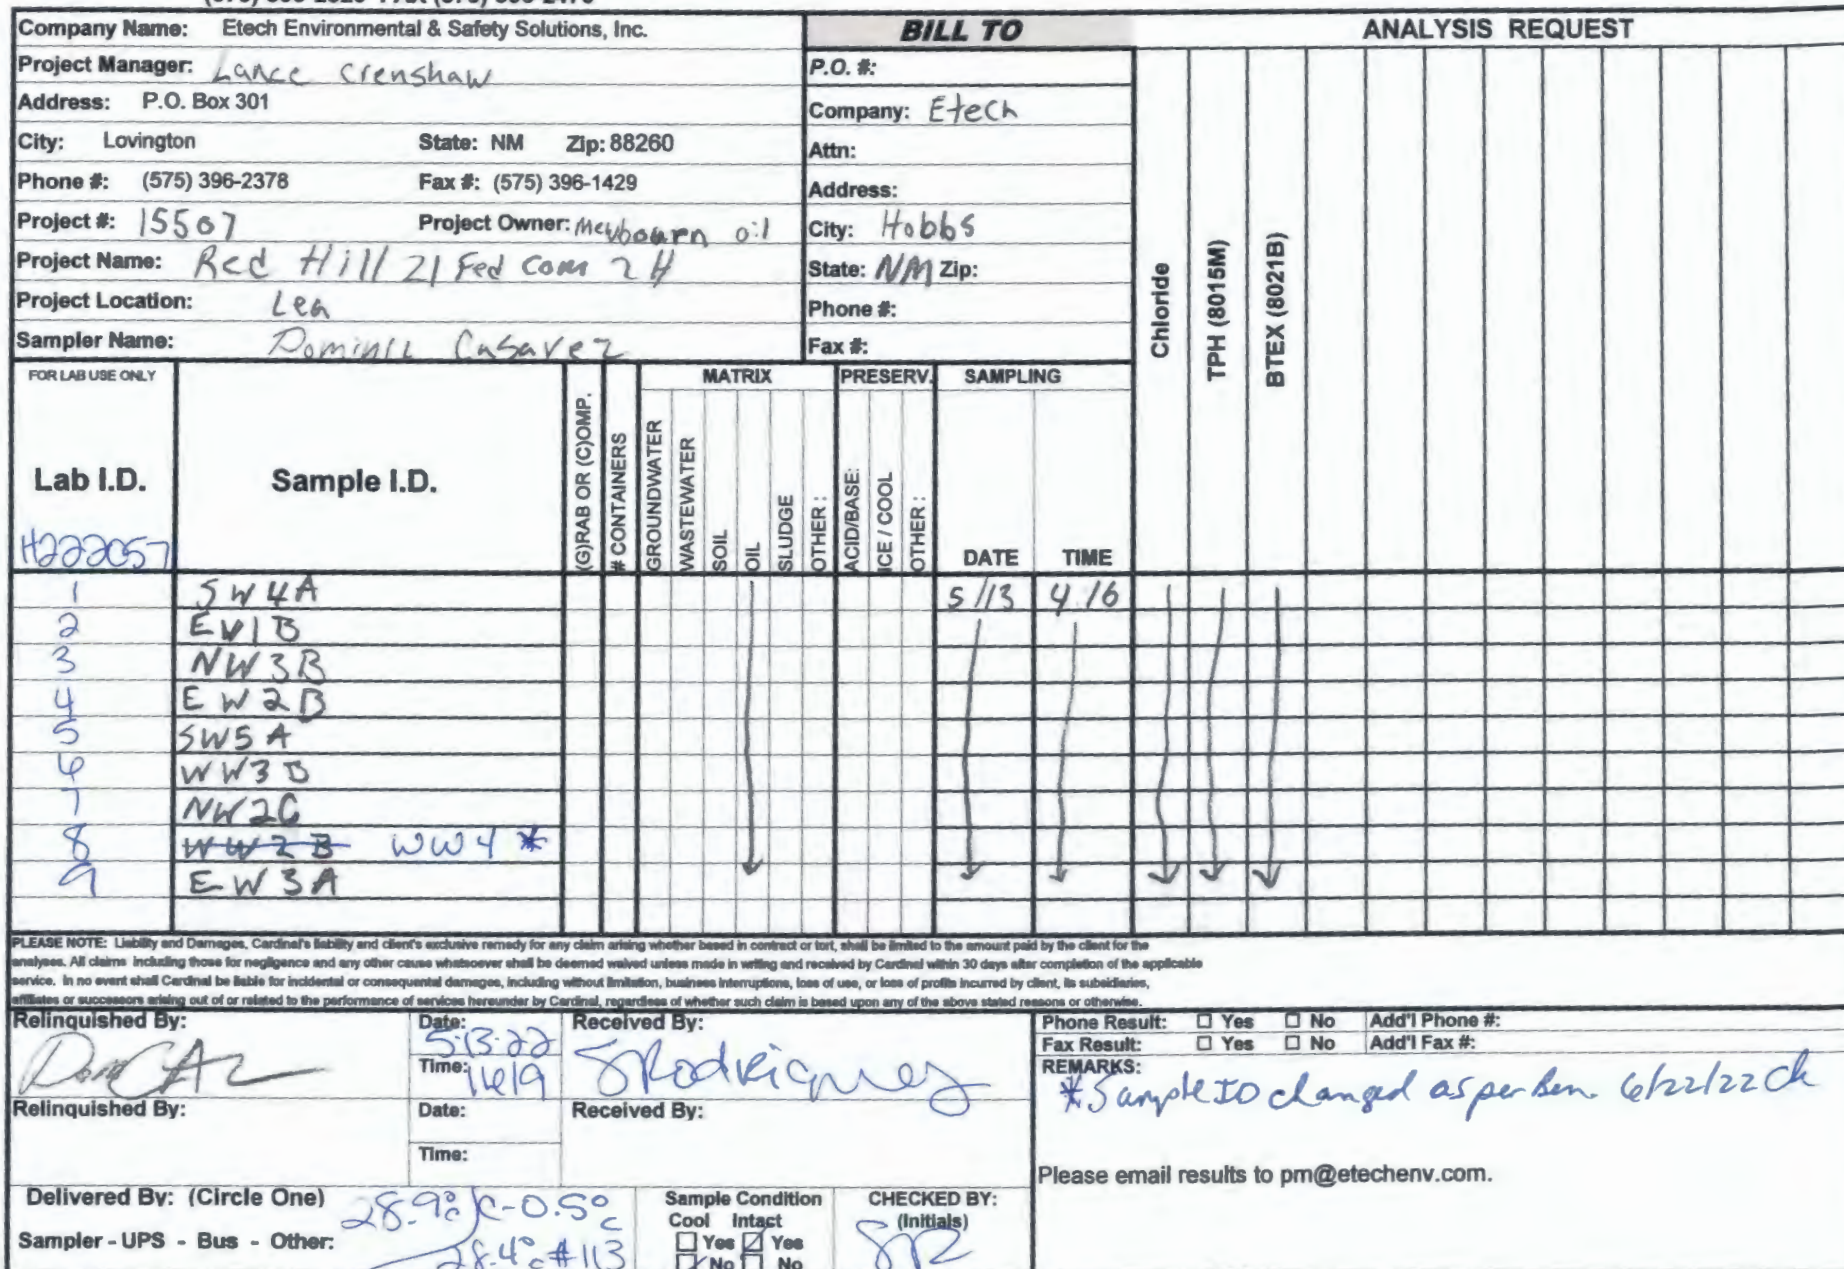 Company Name: Etech Environmental & Safety Solutions, Inc.
BILL TO
ANALYSIS REQUEST
Project Manager: Lance Crenshaw
P.O. #:
Address: P.O. Box 301
Company: Etech
City: Lovington State: NM Zip: 88260
Attn:
Phone #: (575) 396-2378 Fax #: (575) 396-1429
Address:
Project #: 15507 Project Owner: Mewbourn oil
City: Hobbs
Project Name: Red Hill 21 Fed Com 2H
State: NM Zip:
Project Location: Lea
Phone #:
Sampler Name: Dominic Casavez
Fax #:
Chloride
TPH (8015M)
BTEX (8021B)
FOR LAB USE ONLY
MATRIX
PRESERV.
SAMPLING
Lab I.D.
Sample I.D.
(G)RAB OR (C)OMP.
# CONTAINERS
GROUNDWATER
WASTEWATER
SOIL
OIL
SLUDGE
OTHER :
ACID/BASE:
ICE / COOL
OTHER :
DATE
TIME
H222057
1 SW4A 5/13 4:16
2 EW1B
3 NW3B
4 EW2B
5 SW5A
6 WW3B
7 NW2C
8 WW2B WW4 *
9 EW3A
PLEASE NOTE: Liability and Damages, Cardinal's liability and client's exclusive remedy for any claim arising whether based in contract or tort, shall be limited to the amount paid by the client for the
analyses. All claims including those for negligence and any other cause whatsoever shall be deemed waived unless made in writing and received by Cardinal within 30 days after completion of the applicable
service. In no event shall Cardinal be liable for incidental or consequental damages, including without limitation, business interruptions, loss of use, or loss of profits incurred by client, its subsidiaries,
affiliates or successors arising out of or related to the performance of services hereunder by Cardinal, regardless of whether such claim is based upon any of the above stated reasons or otherwise.
Relinquished By:
Date: 5-13-22
Time: 1619
Received By:
SRodriguez
Phone Result: Yes No Add'l Phone #:
Fax Result: Yes No Add'l Fax #:
REMARKS:
* Sample ID changed as per Ben. 6/22/22 CK
Relinquished By:
Date:
Time:
Received By:
Please email results to pm@etechenv.com.
Delivered By: (Circle One)
28.9°c/C-0.5°c
Sampler - UPS - Bus - Other:
28.4°c #113
Sample Condition
Cool Intact
Yes Yes
No No
CHECKED BY:
(Initials)
SR